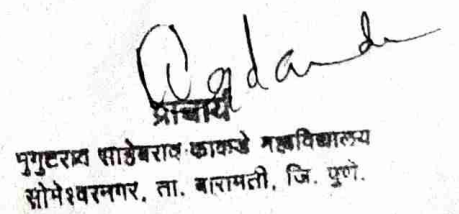 प्राचार्य
मुगुटराव साहेबराव काकडे महाविद्यालय
सोमेश्वरनगर, ता. बारामती, जि. पुणे.